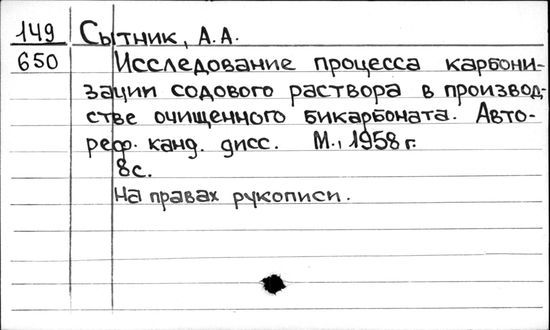 149 Сытник, А.А.
650 Исследование процесса карбони-
зации содового раствора в производ-
стве очищенного бикарбоната. Авто-
реф. канд. дисс. М., 1958 г.
8с.
На правах рукописи.